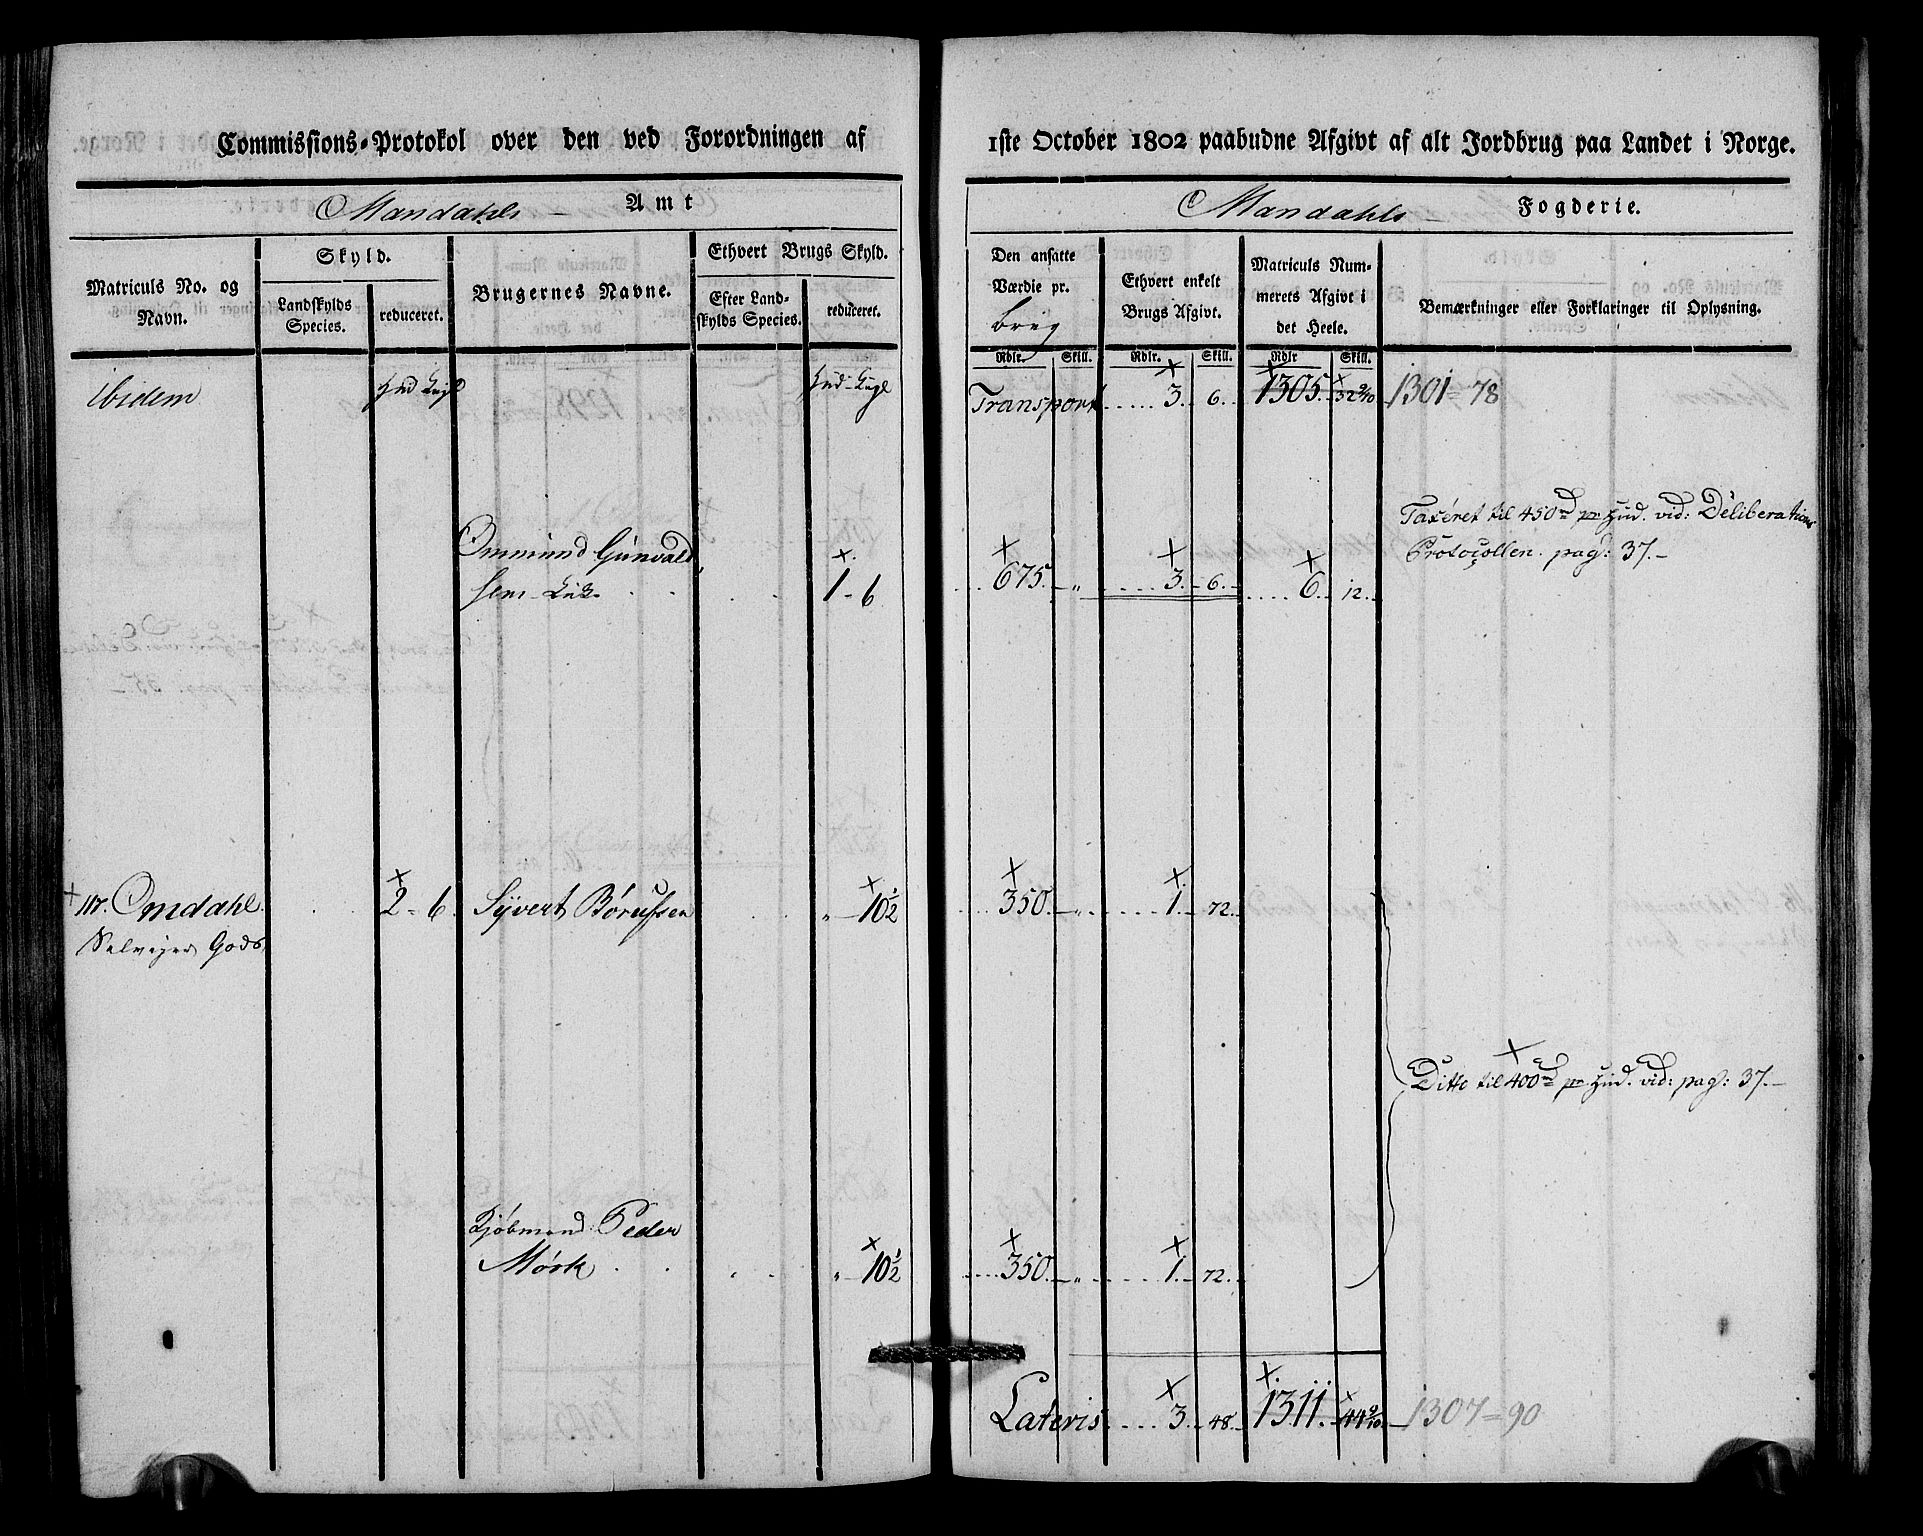 Commissions-Protokol over den ved Forordningen af
Mandahls Amt
Matriculs No. og Navn.
Skyld.
Landskylds Species.
reduceret.
Brugernes Navne.
Ethvert Brugs Skyld.
Efter Landskylds Species.
reduceret.
ibidem
Ommund Gunvald
sen
1 - 6
117. Omdahl. 2 - 6. Syvert Børufsen " - 10½
Selvejer Gods
Kjøbmand Peder
Mørk " - 10½
1ste October 1802 paabudne Afgivt af alt Jordbrug paa Landet i Norge.
Mandahls Fogderie.
Den ansatte Værdie pr.
brug
Ethvert enkelt Brugs Afgivt.
Matriculs Nummerets Afgivt i det Heele.
Bemærkninger eller Forklaringer til Oplysning.
Rdlr. Skill. Rdlr. Skill. Rdlr Skill.
Transport 3. 6. 1305. 32 9/10 1301 = 78
Taxeret til 450 rd pr Hud. vid: Deliberations
Protocollen. pag: 37. -
675. - " 3. - 6. - 6. 12.
350. - " 1. - 72.
Ditto til 400 rd pr Hud. vid: pag: 37. -
350. - " 1. - 72.
Lateris 3. 48. 1311. 44 9/10 1307 = 90